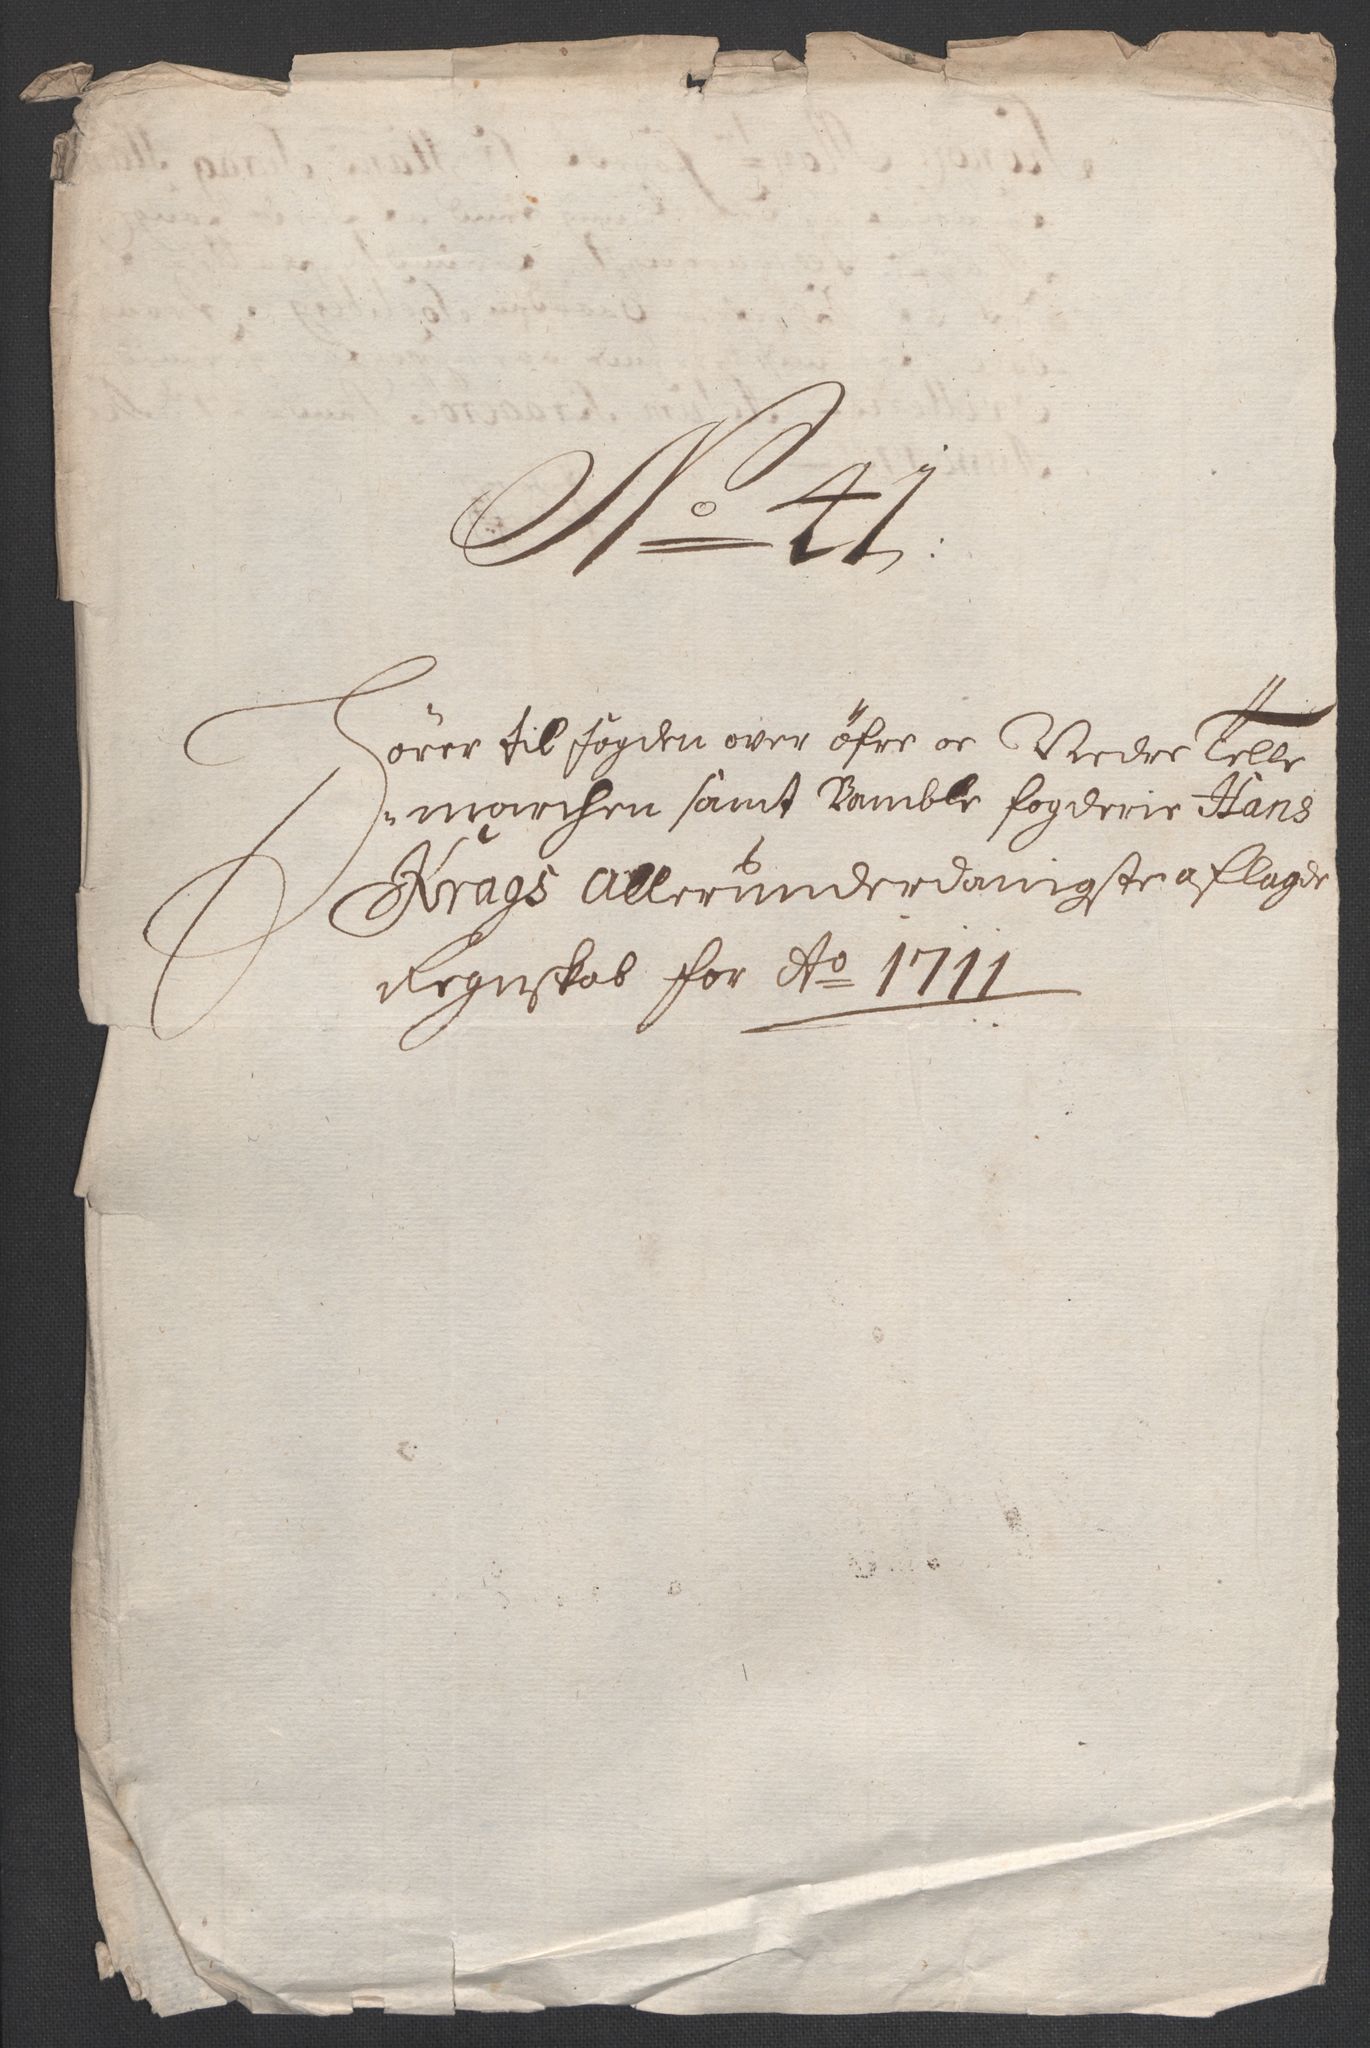 No 41:
Hörer til fogden over öfre oc Nedre Telle
-marchen samt Bamble fogderie Hans
Krags Allerunderdanigste aflagde
Regnskab for Ao 1711